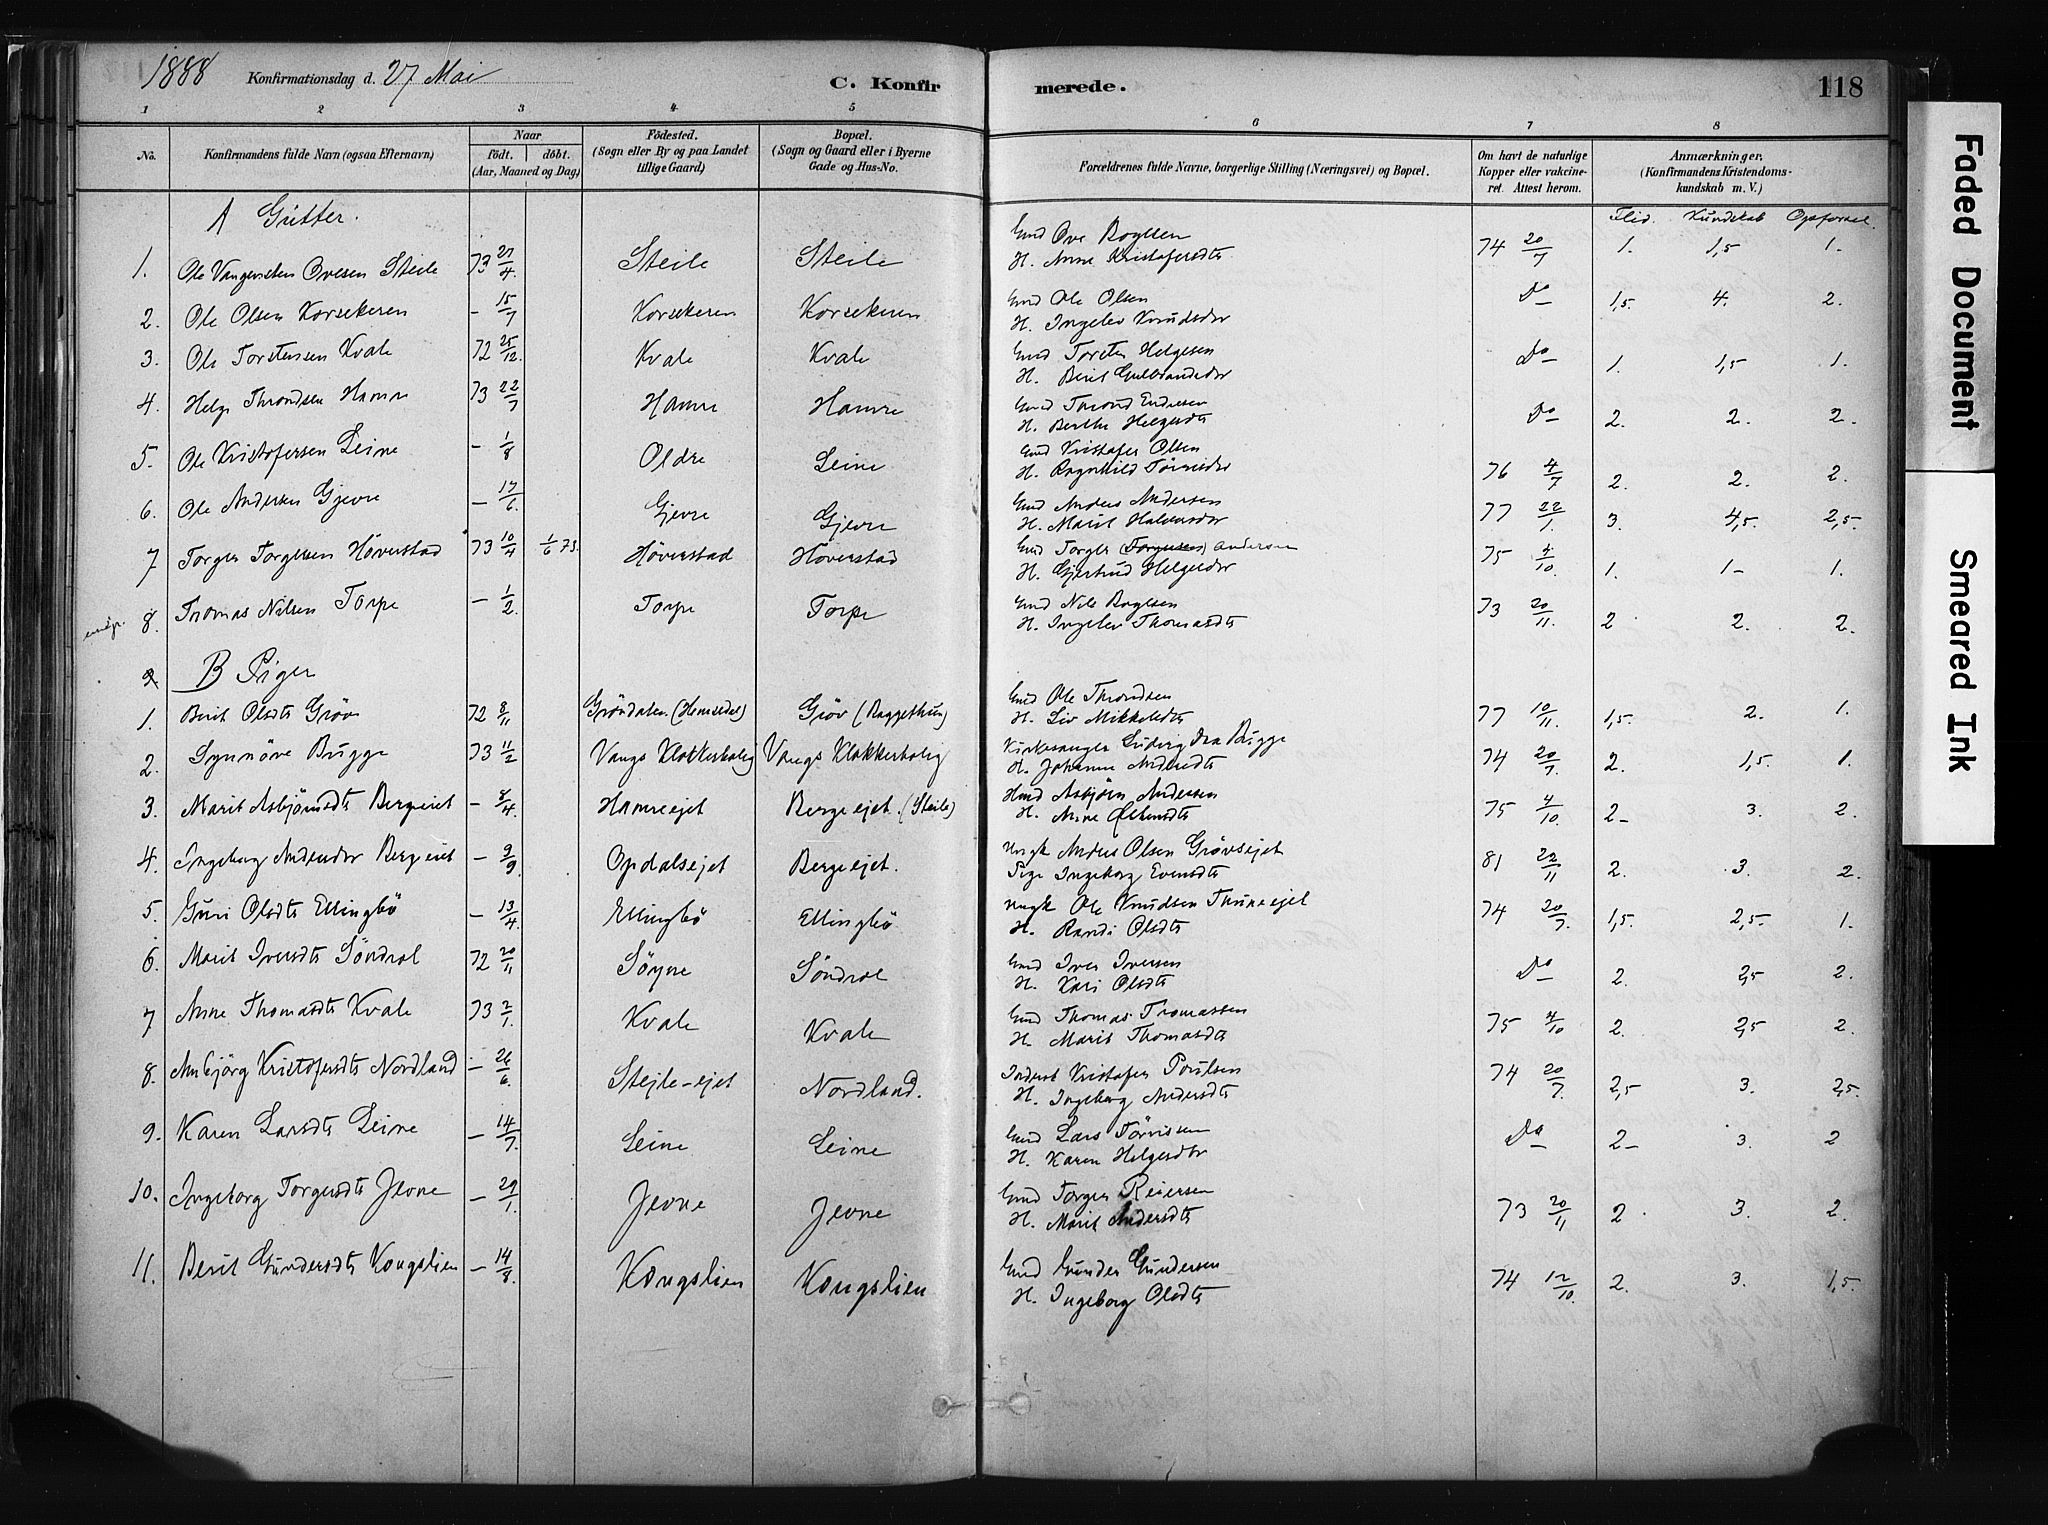 1888 Konfirmationsdag d. 27 Mai C. Konfirmerede. 118
1 2 3 4 5 6 7 8
No. Konfirmandens fulde Navn (ogsaa Efternavn) Naar født. døbt. (Aar, Maaned og Dag) Födested. (Sogn eller By og paa Landet tillige Gaard) Bopæl. (Sogn og Gaard eller i Byerne Gade og Hus-No. Forældrenes fulde Navne, borgerlige Stilling (Næringsvei) og Bopæl. Om havt de naturlige Kopper eller vakcineret. Attest herom. Anmærkninger. (Konfirmandens Kristendomskundskab m. V.)
A Gutter. Flid. Kundskab Opførsel.
1. Ole Vangensten Ovesen Steile 73 27/4. Steile Steile Gmd Ove Boyesen H. Anne Kristofersdtr 74 20/7 1. 1,5 1.
2. Ole Olsen Korsekeren - 15/7 Korsekeren Korsekeren Gmd Ole Olsen H. Ingelev Knudsdtr Do 1,5. 4. 2.
3. Ole Torstensen Kvale 72 25/12. Kvale Kvale Gmd Torsten Helgesen H. Berit Gulbrandsdtr Do 1. 1,5. 1.
4. Helge Throndsen Hamre 73 22/7 Hamre Hamre Gmd Thrond Endresen H. Berthe Helgesdtr Do 2. 2. 2.
5. Ole Kristofersen Leine - 1/8 Oldre Leine Gmd Kristofer Olsen H. Ragnhild Törrisdtr 76 4/7 2. 2. 2.
6. Ole Andersen Gjevre - 17/6. Gjevre Gjevre Gmd Anders Andersen H. Marit Halvorsdtr 77 22/1. 3. 4,5. 2,5.
7 Torger Torgersen Höverstad 73 10/4 1/6 73. Höverstad Höverstad Gmd Torger (Torgersen) Andersen H. Gjertrud Helgesdtr 75 4/10. 1. 1- 1.
8. Thomas Nilsen Torpe - 1/2. Torpe Torpe Gmd Nils Boyesen H. Ingelev Thomasdtr 73 20/11. 2 2. 2.
B Piger
1. Berit Olsdtr Gröv 72 8/11 Gröndalen (Hemsedal) Gröv (Baggethun) Gmd Ole Throndsen H. Liv Mikkelsdtr 77 10/11. 1,5. 2. 1.
2. Synnöve Bugge 73 11/2 Vangs Klokkerbolig Vangs Klokkerbolig Kirkesanger Ludvig Dea Bugge H. Johanne Andersdtr 74 20/7. 2. 1,5. 1.
3. Marit Asbjörnsdtr Bergeiet - 8/4. Hamreejet Bergeejet. (Steile) Hmd Asbjörn Andersen H. Anne Östensdtr 75 4/10. 2- 3. 2.
4. Ingeborg Andersdtr Bergeiet - 9/9. Opdalsejet Bergeejet. Ungk Anders Olsen Grövsejet Pige Ingeborg Evensdtr 81 22/11 2. 3. 2.
5. Guri Olsdtr Ellingbö - 13/4. Ellingbö Ellingbö Ungk Ole Knudsen Thuneejet H. Randi Olsdtr 74 20/7. 1,5. 2,5. 1.
6. Marit Iversdtr Söndrol 72 20/11 Söyne Söndrol Gmd Iver Iversen H. Kari Olsdtr Do 2. 2,5 2.
7 Anne Thomasdtr Kvale 73 2/1. Kvale Kvale Gmd Thomas Thomassen H. Marit Thomasdtr 75 4/10 2. 2,5 2.
8. Ambjörg Kristofersdtr Nordland - 26/6. Stejle-ejet Nordland. Inderst Kristofer Poulsen H. Ingeborg Andersdtr 74 20/7. 2,5 3. 2,5.
9. Karen Larsdtr Leine - 14/7. Leine Leine Gmd Lars Törrissen H. Karen Helgesdtr Do 2- 3. 2
10. Ingeborg Torgersdtr Jevne - 29/1. Jevne Jevne Gmd Torger Reiersen H. Marit Andersdtr 73 20/11 2 3. 2.
11. Berit Gundersdtr Kongslien - 14/8. Kongslien Kongslien Gmd Gunder Gundersen H. Ingeborg Olsdtr 74 12/10. 2. 3. 1,5.
Faded Document
Smeared Ink